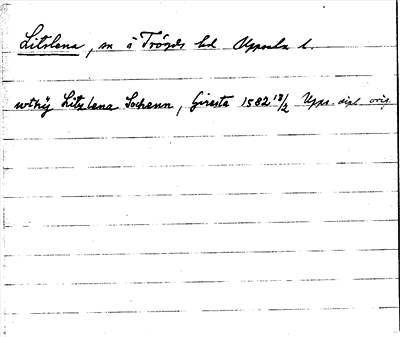 Litslena, sn i Trögds hd Uppsala l.
wthij Litzlena Sochenn, Giresta 1582 18/2 Upps. dipl. orig.